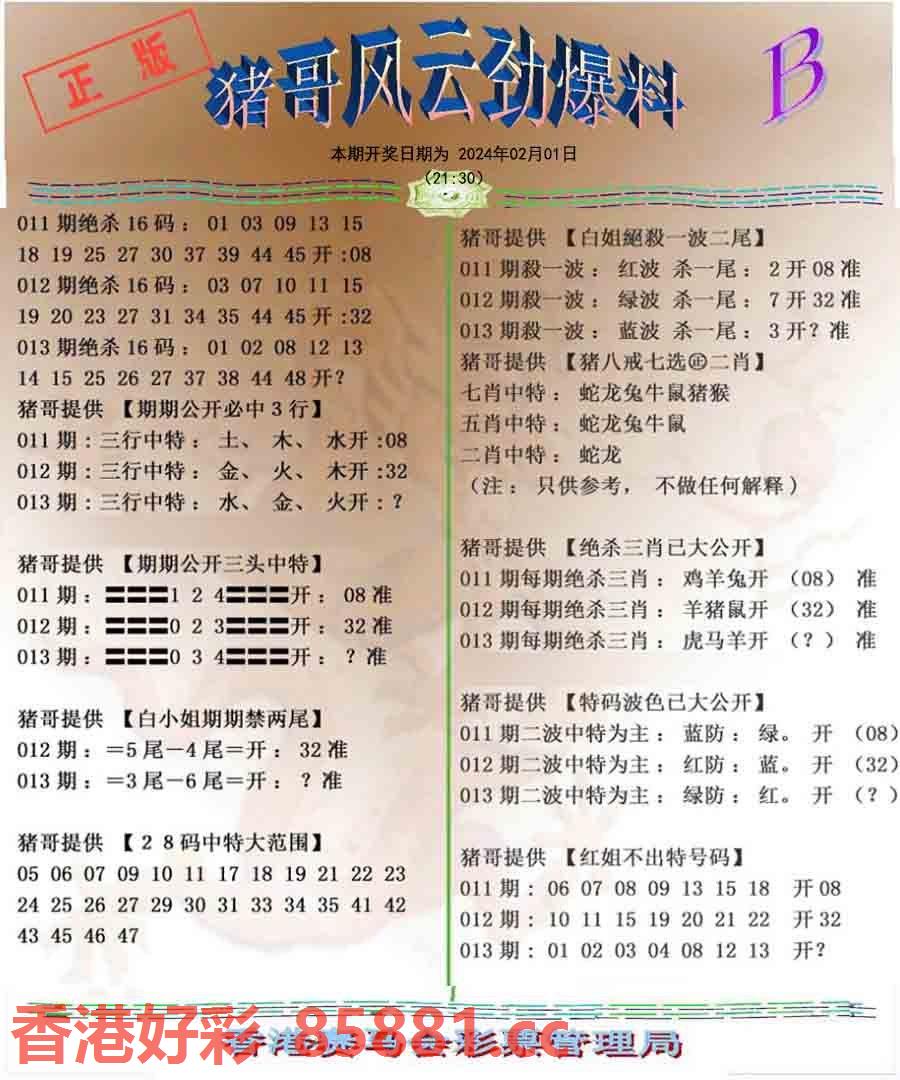 正版
猪哥风云劲爆料
B
本期开奖日期为 2024年02月01日
(21:30)
011期绝杀16码： 01 03 09 13 15
18 19 25 27 30 37 39 44 45开:08
012期绝杀16码： 03 07 10 11 15
19 20 23 27 31 34 35 44 45开:32
013期绝杀16码： 01 02 08 12 13
14 15 25 26 27 37 38 44 48开?
猪哥提供 【期期公开必中3行】
011期:三行中特： 土、 木、 水开:08
012期:三行中特： 金、 火、 木开:32
013期:三行中特： 水、 金、 火开:？
猪哥提供 【期期公开三头中特】
011期：〓〓〓1 2 4〓〓〓开：08准
012期：〓〓〓0 2 3〓〓〓开：32准
013期：〓〓〓0 3 4〓〓〓开：？准
猪哥提供 【白小姐期期禁两尾】
012期：＝5尾－4尾＝开：32准
013期：＝3尾－6尾＝开：？准
猪哥提供 【２８码中特大范围】
05 06 07 09 10 11 17 18 19 21 22 23
24 25 26 27 29 30 31 33 34 35 41 42
43 45 46 47
猪哥提供 【白姐絕殺一波二尾】
011期殺一波： 红波 杀一尾：2开08准
012期殺一波： 绿波 杀一尾：7开32准
013期殺一波： 蓝波 杀一尾：3开？准
猪哥提供 【猪八戒七选㊣二肖】
七肖中特： 蛇龙兔牛鼠猪猴
五肖中特： 蛇龙兔牛鼠
二肖中特： 蛇龙
（注： 只供参考， 不做任何解释)
猪哥提供 【绝杀三肖已大公开】
011期每期绝杀三肖： 鸡羊兔开 （08） 准
012期每期绝杀三肖： 羊猪鼠开 （32） 准
013期每期绝杀三肖： 虎马羊开 （？） 准
猪哥提供 【特码波色已大公开】
011期二波中特为主：蓝防：绿。 开 （08)
012期二波中特为主：红防：蓝。 开 （32)
013期二波中特为主：绿防：红。 开 （？)
猪哥提供 【红姐不出特号码】
011期: 06 07 08 09 13 15 18 开08
012期: 10 11 15 19 20 21 22 开32
013期: 01 02 03 04 08 12 13 开?
香港好彩 85881.cc
香港赛马会彩票管理局